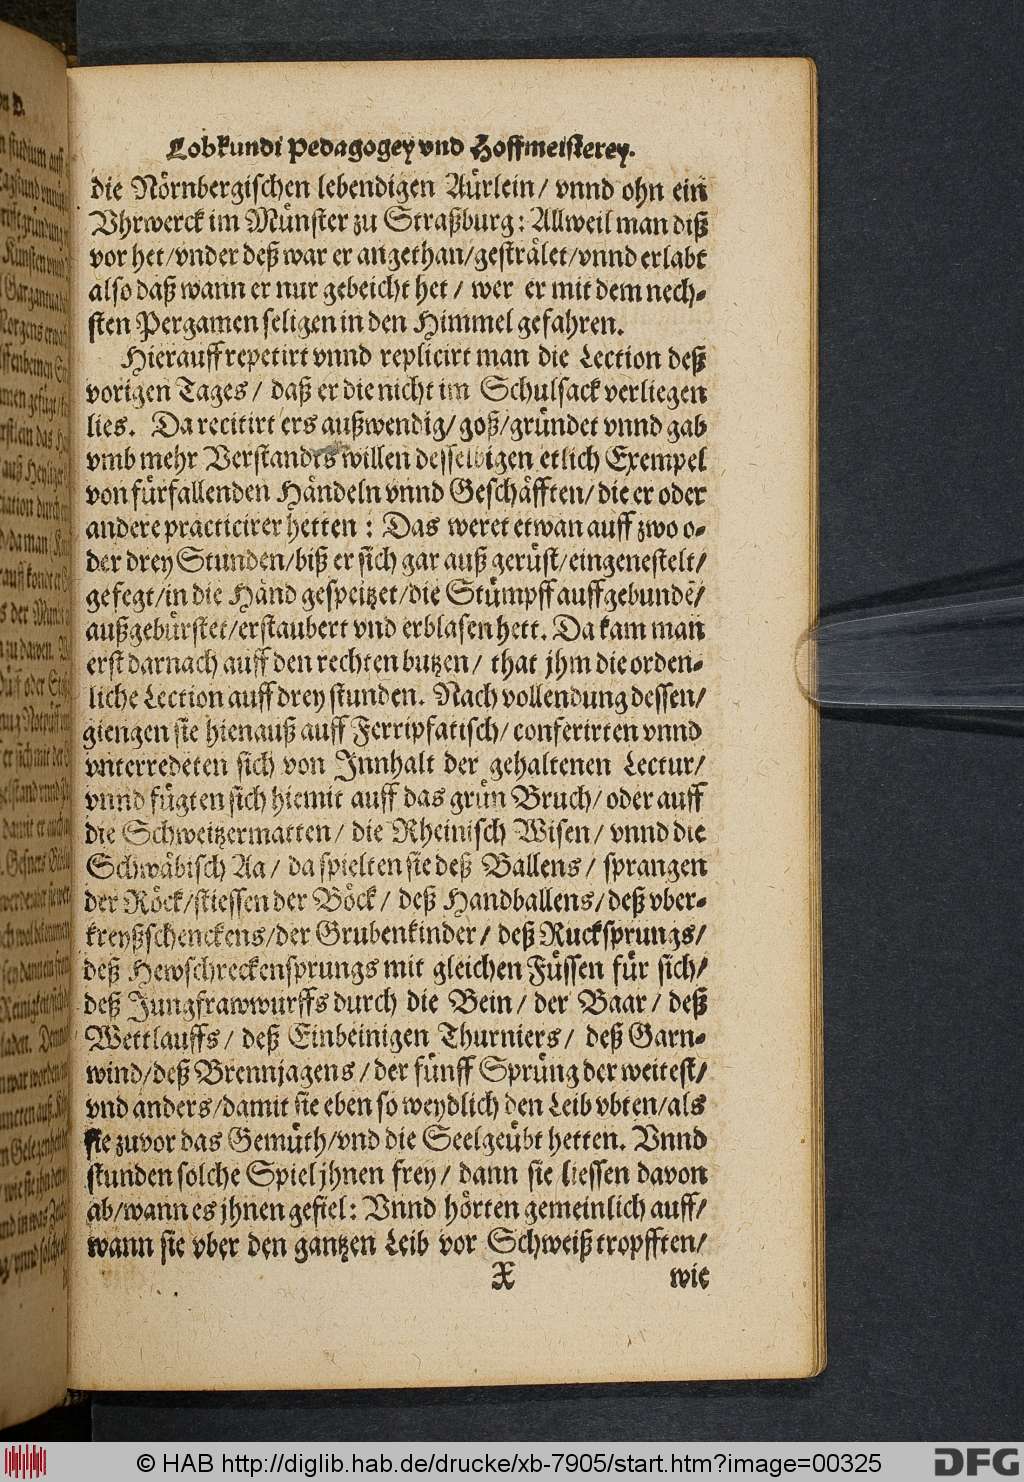 Lobkundi Pedagogey vnd Hoffmeisterey.
die Nörnbergischen lebendigen Aürlein/ vnnd ohn ein
Vhrwerck im Münster zu Straßburg: Allweil man diß
vor het/vnder deß war er angethan/gesträlet/vnnd erlabt
also daß wann er nur gebeicht het/ wer er mit dem nech-
sten Pergamen seligen in den Himmel gefahren.
Hierauff repetirt vnnd replicirt man die Lection deß
vorigen Tages/ daß er die nicht im Schulsack verliegen
lies. Da recitirt ers außwendig/ goß/gründet vnnd gab
vmb mehr Verstandts willen desselbigen etlich Exempel
von fürfallenden Händeln vnnd Geschäfften/ die er oder
andere practicirer hetten: Das weret etwan auff zwo o-
der drey Stunden/biß er sich gar auß gerüst/eingenestelt/
gefegt/in die Händ gespeitzet/die Stümpff auffgebundē/
außgebürstet/erstaubert vnd erblasen hett. Da kam man
erst darnach auff den rechten butzen/ that jhm die orden-
liche Lection auff drey stunden. Nach vollendung dessen/
giengen sie hienauß auff Ferripfatisch/ conferirten vnnd
vnterredeten sich von Innhalt der gehaltenen Lectur/
vnnd fügten sich hiemit auff das grün Bruch/ oder auff
die Schweitzermatten/ die Rheinisch Wisen/ vnnd die
Schwäbisch Aa/ da spielten sie deß Ballens/ sprangen
der Röck/stiessen der Böck/ deß Handballens/deß vber-
kreyßschenckens/der Grubenkinder/ deß Rucksprungs/
deß Hewschreckensprungs mit gleichen Füssen für sich/
deß Jungfrawwurffs durch die Bein/ der Baar/ deß
Wettlauffs/ deß Einbeinigen Thurniers/ deß Garn-
wind/deß Brennjagens/der fünff Sprüng der weitest/
vnd anders/damit sie eben so weydlich den Leib vbten/als
sie zuvor das Gemüth/vnd die Seel geübt hetten. Vnnd
stunden solche Spiel jhnen frey/ dann sie liessen davon
ab/wann es jhnen gefiel: Vnnd hörten gemeinlich auff/
wann sie vber den gantzen Leib vor Schweiß tropfften/
X wie
© HAB http://diglib.hab.de/drucke/xb-7905/start.htm?image=00325
DFG